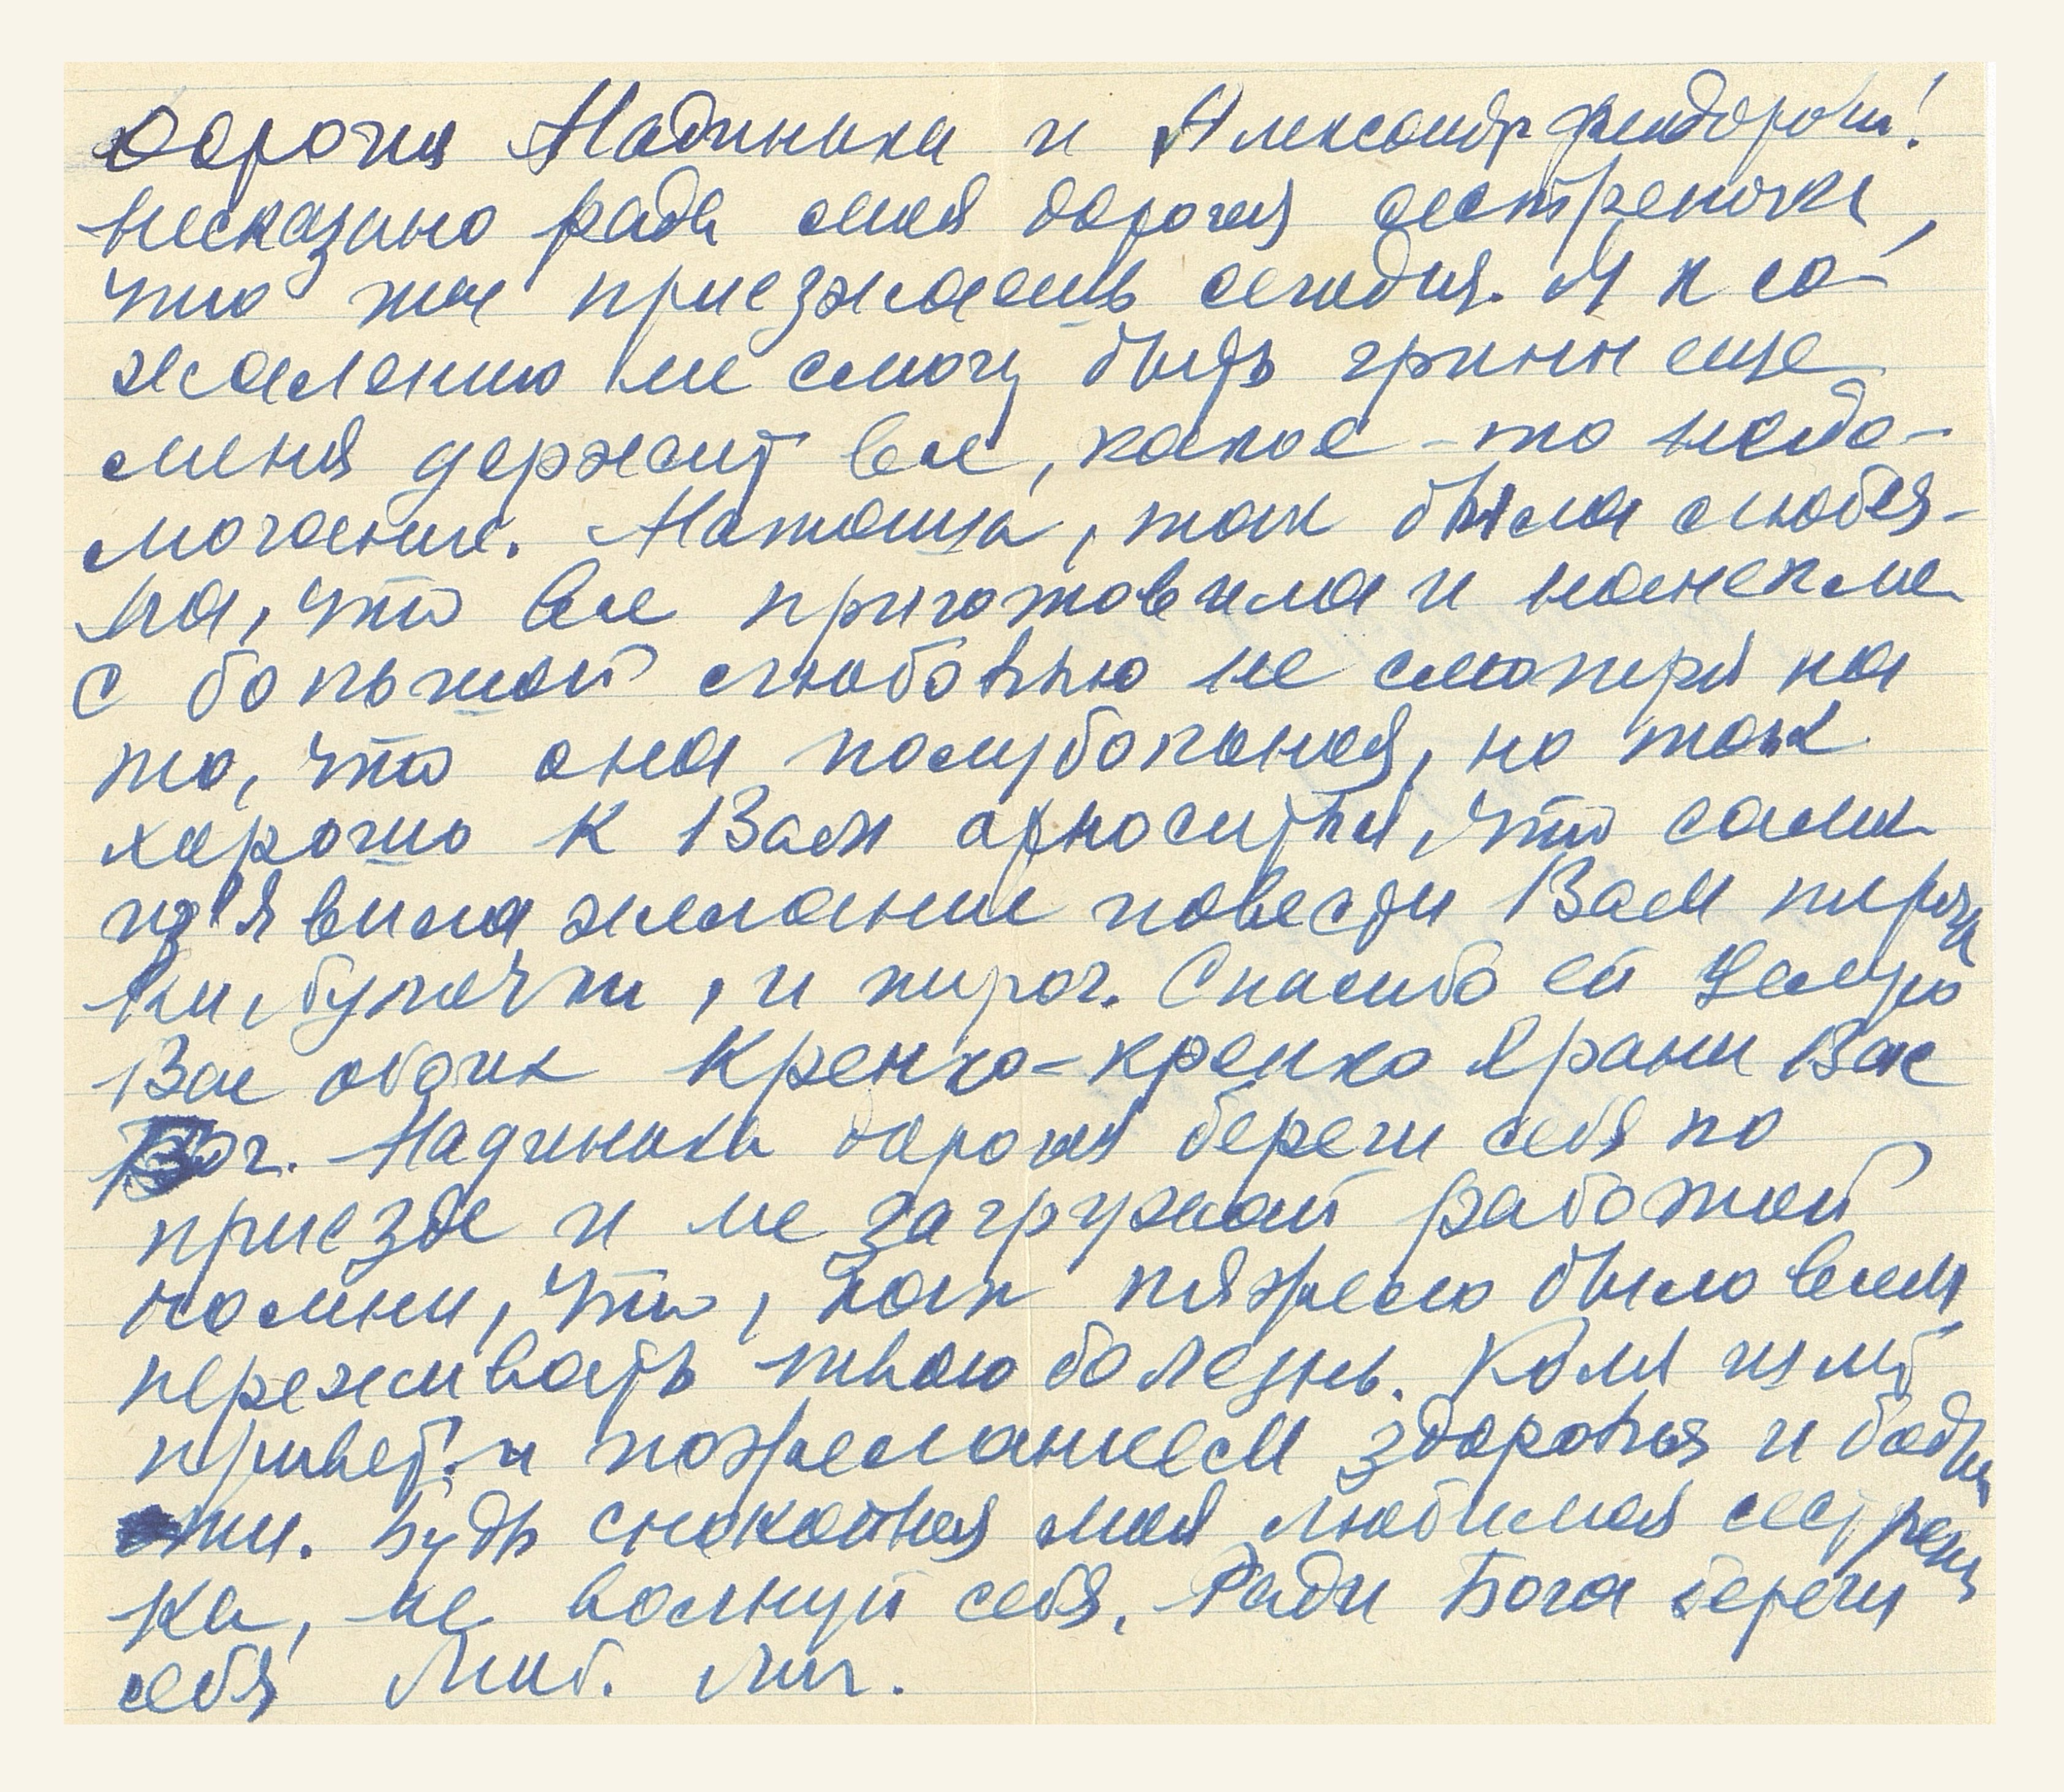 Дорогия Надинька и Александр Феидорович!
Несказано рада моя дорогая сестреночка,
что ты приезжаешь сегодня. Я к со-
жалению не смогу быть грипп еще
меня держит все, какое-то недо-
могание. Наташа, так была любез-
на, что все приготовила и напекла
с большой любовью не смотря на
то, что она полубольная, но так
хорошо к Вам относиться, что сама
из'явила желание повести Вам пирож
ки, булочки, и пирог. Спасибо ей Целую
Вас обоих Крепко-крепко Храни Вас
Бог. Надинька дорогая береги себя по
приезде и не загружай работой
помни, что, как тяжело было всем
переживать твою болезнь. Коля шлет
привет и пожеланием здоровья и бодро
сти. Будь спокойная моя любимая сестрено
ка, не волнуй себя. Ради Бога береги
себя Люб.